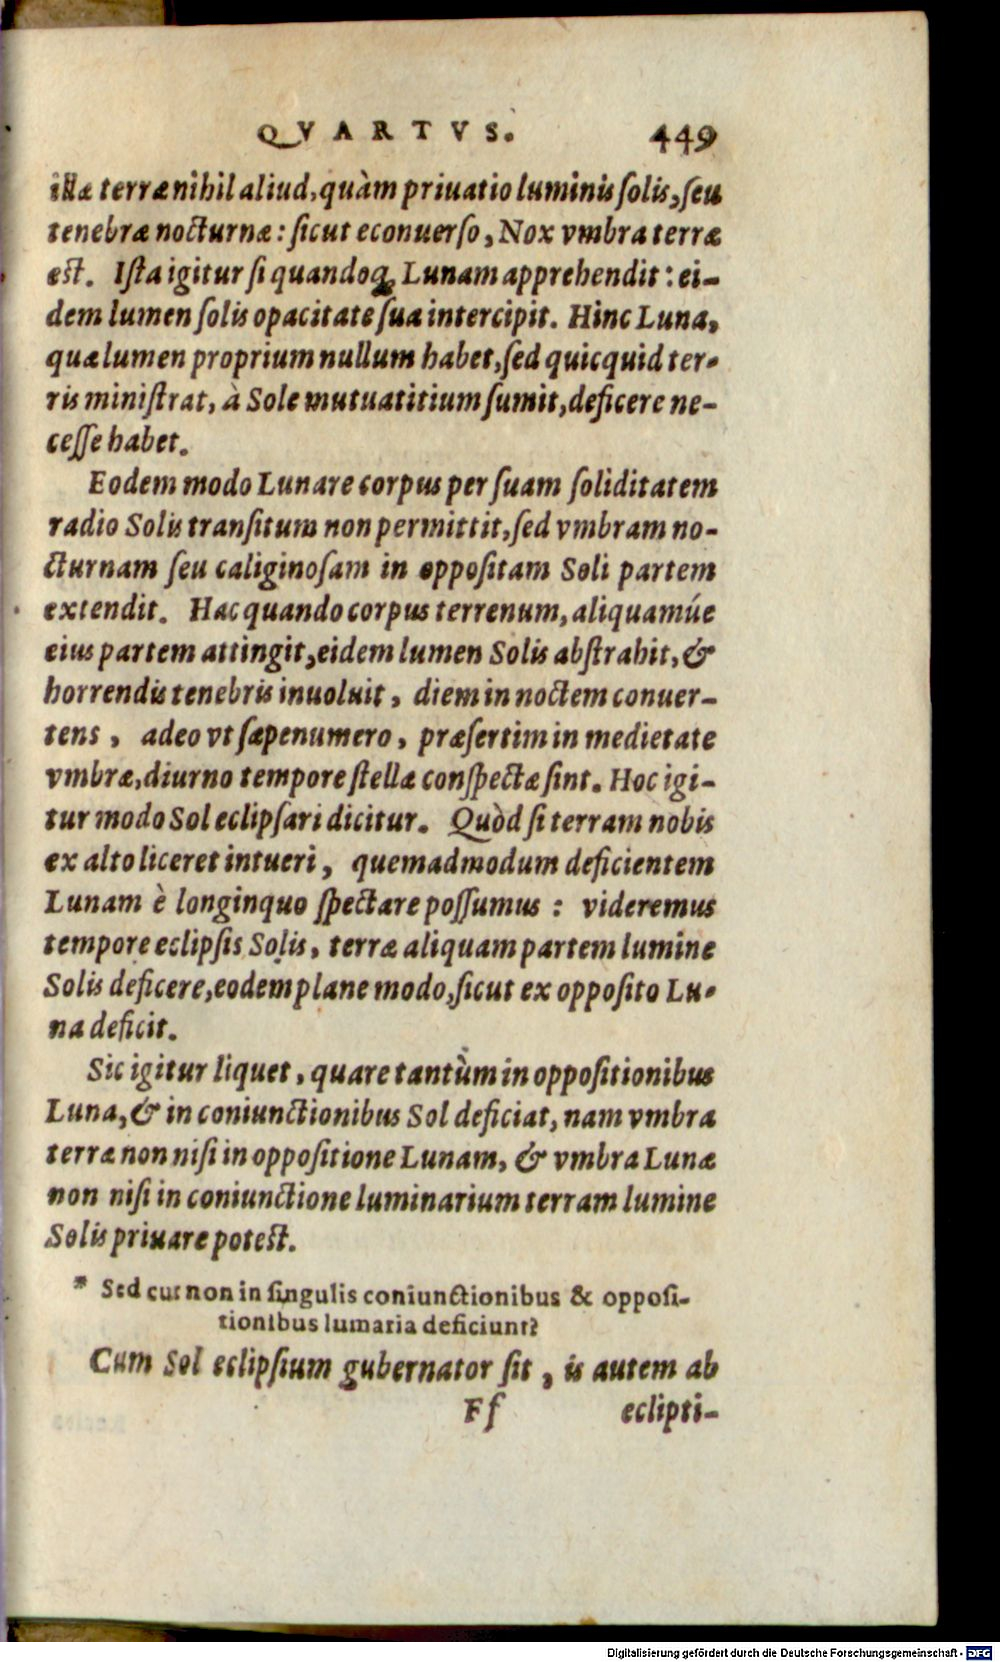 QVARTVS. 449
illæ terræ nihil aliud, quàm priuatio luminis ſolis, ſeu
tenebræ nocturnæ: ſicut econuerſo, Nox vmbra terræ
eſt. Iſta igitur ſi quandoq; Lunam apprehendit: ei-
dem lumen ſolis opacitate ſua intercipit. Hinc Luna,
quæ lumen proprium nullum habet, ſed quicquid ter-
ris miniſtrat, à Sole mutuatitium ſumit, deficere ne-
ceſſe habet.
Eodem modo Lunare corpus per ſuam ſoliditatem
radio Solis tranſitum non permittit, ſed vmbram no-
cturnam ſeu caliginoſam in oppoſitam Soli partem
extendit. Hac quando corpus terrenum, aliquamúe
eius partem attingit, eidem lumen Solis abſtrahit, &
horrendis tenebris inuoluit, diem in noctem conuer-
tens, adeo vt ſæpenumero, præſertim in medietate
vmbræ, diurno tempore ſtellæ conſpectæ ſint. Hoc igi-
tur modo Sol eclipſari dicitur. Quòd ſi terram nobis
ex alto liceret intueri, quemadmodum deficientem
Lunam è longinquo ſpectare poſſumus: videremus
tempore eclipſis Solis, terræ aliquam partem lumine
Solis deficere, eodem plane modo, ſicut ex oppoſito Lu-
na deficit.
Sic igitur liquet, quare tantùm in oppoſitionibus
Luna, & in coniunctionibus Sol deficiat, nam vmbra
terræ non niſi in oppoſitione Lunam, & vmbra Lunæ
non niſi in coniunctione luminarium terram lumine
Solis priuare poteſt.
* Sed cur non in ſingulis coniunctionibus & oppoſi-
tionibus lumaria deficiunt?
Cum Sol eclipſium gubernator ſit, is autem ab
Ff eclipti-
Digitalisierung gefördert durch die Deutsche Forschungsgemeinschaft - DFG